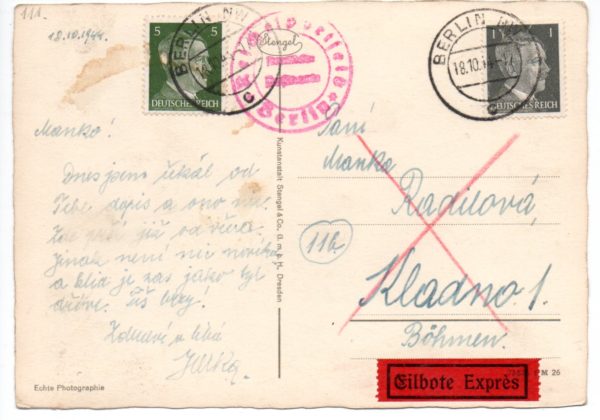 111.
18.10.1944.
Manko!
Dnes jsem čekal od
Tebe dopis a ono nic.
již od včera.
Jinak není nic nového
a je zas jako byl
dříve.
Zdraví a líbá
Jirka.
5 5
DEUTSCHES REICH
BERLIN NW
c
Stengel
Berlin
BERLIN NW
18.10.44
c
1 1
DEUTSCHES REICH
Kunstanstalt Stengel & Co., G. m. b. H., Dresden
Paní
Manka
Radilová,
116.
Kladno 1.
Böhmen.
Eilbote Exprès
PM 26
Echte Photographie